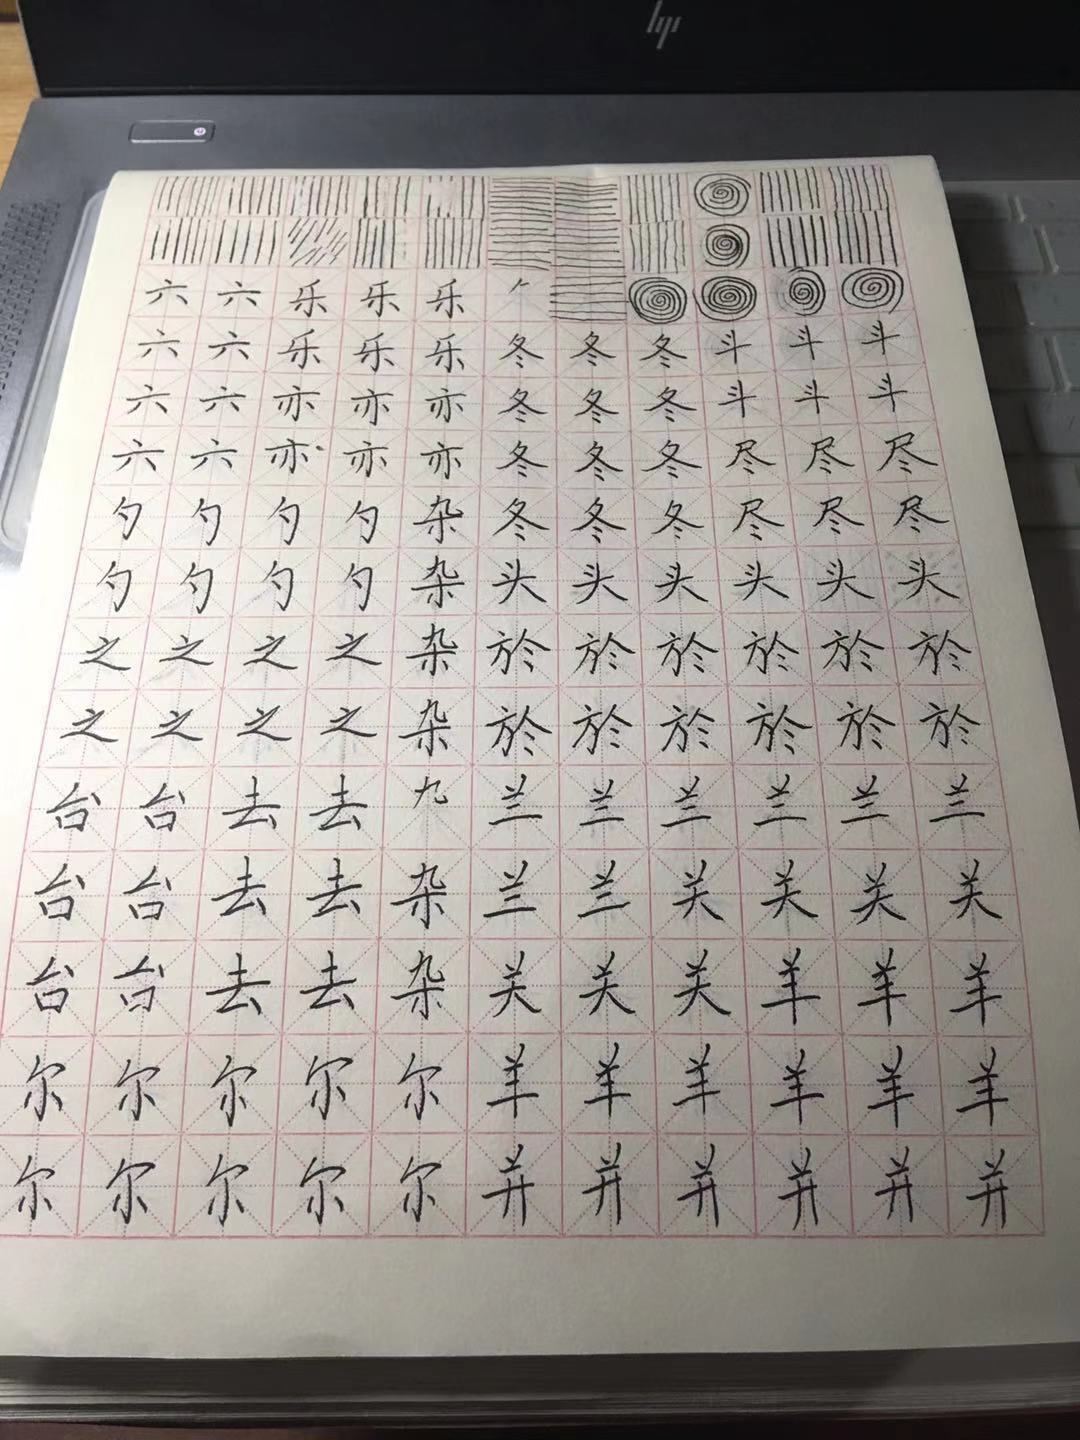 hp
六 六 乐 乐 乐
六 六 乐 乐 乐 冬 冬 冬 斗 斗 斗
六 六 亦 亦 亦 冬 冬 冬 斗 斗 斗
六 六 亦 亦 亦 冬 冬 冬 尽 尽 尽
勺 勺 勺 勺 杂 冬 冬 冬 尽 尽 尽
勺 勺 勺 勺 杂 头 头 头 头 头 头
之 之 之 之 杂 於 於 於 於 於 於
之 之 之 之 杂 於 於 於 於 於 於
台 台 去 去 九 兰 兰 兰 兰 兰 兰
台 台 去 去 杂 兰 兰 关 关 关 关
台 台 去 去 杂 关 关 关 羊 羊 羊
尔 尔 尔 尔 尔 羊 羊 羊 羊 羊 羊
尔 尔 尔 尔 尔 并 并 并 并 并 并